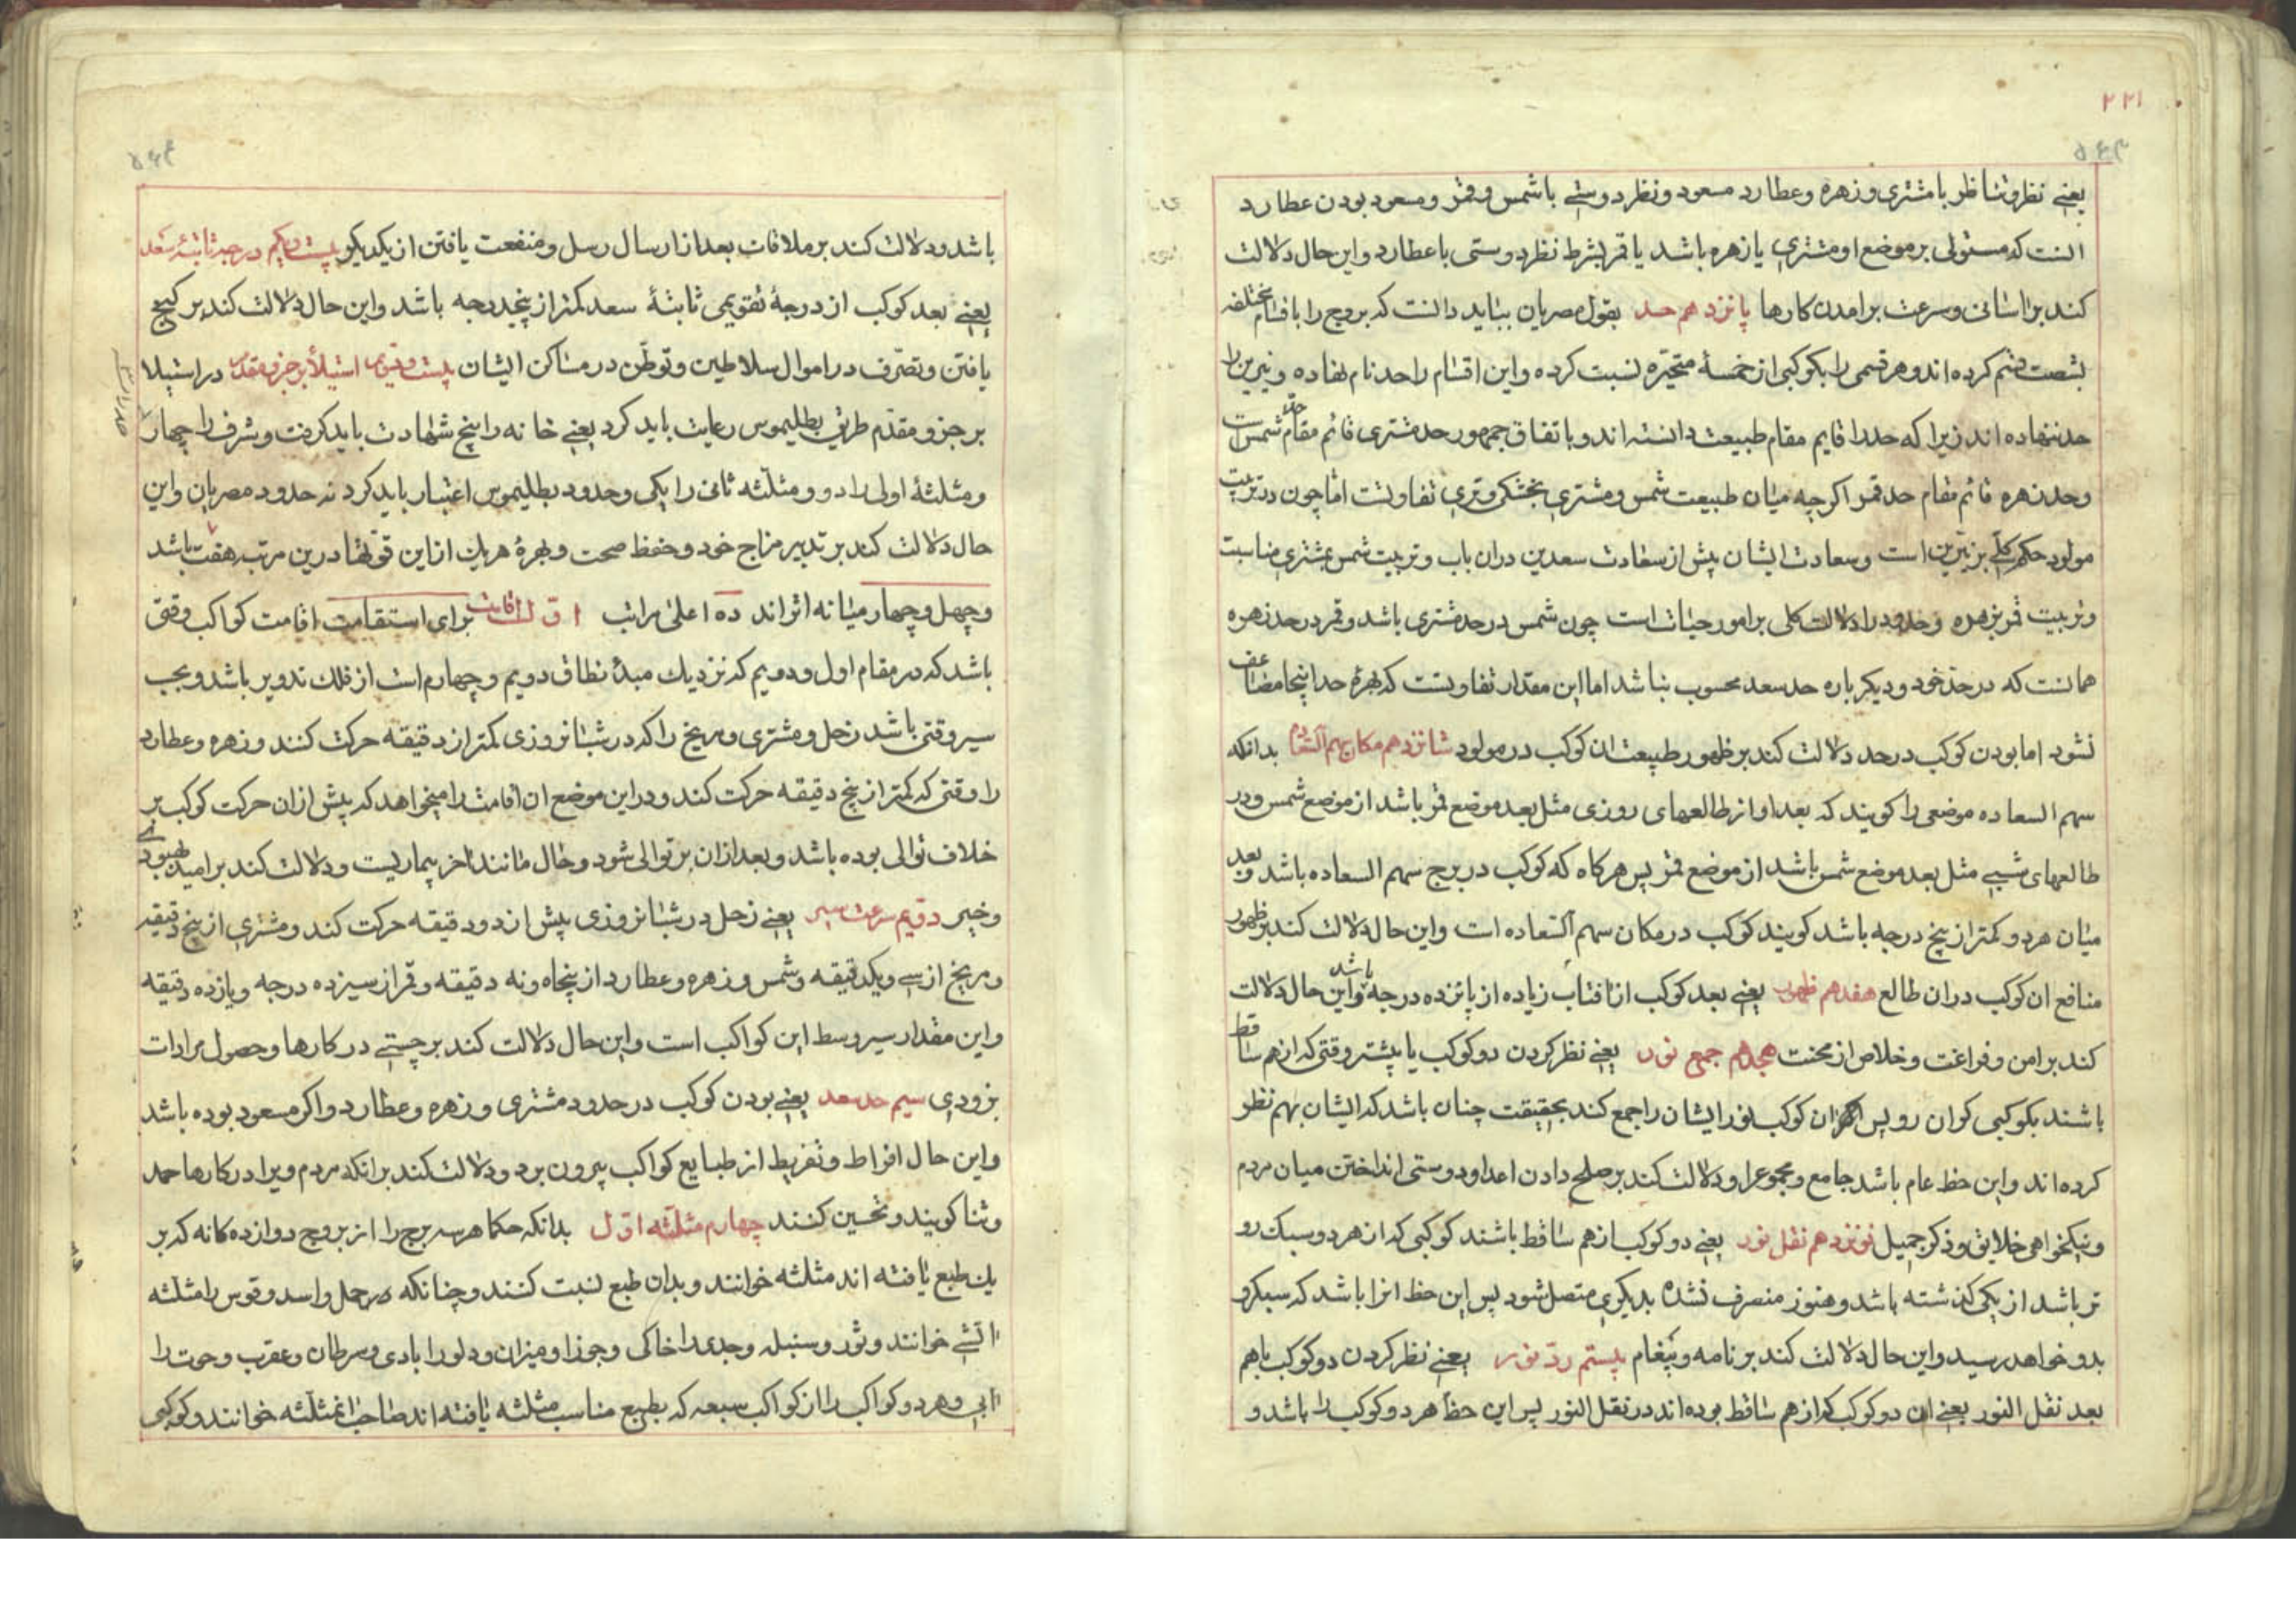 ۲۲۱
۵۶۳
یعنی نظر و تناظر با مشتری و زهره و عطارد مسعود و نظر دوستی با شمس و قمر و مسعود بودن عطارد
انست که مستولی بر موضع او مشتری یا زهره باشد یا قمر بشرط نظر دوستی با عطارد و این حال دلالت
کند بر اسانی و سرعت برامدن کارها پانزدهم حد بقول مصریان بباید دانست که بروج را باقسام مختلفه
بشصت قسم کرده اند و هر قسمی را بکوکبی از خمسهٔ متحیّره نسبت کرده و این اقسام را حد نام نهاده و نیرین را
حد ننهاده اند زیرا که حد را قایم مقام طبیعت دانسته اند و باتفاق جمهور حد مشتری قائم مقام حد شمس است
و حد زهره قائم مقام حد قمر اکرچه میان طبیعت شمس و مشتری بخشکی و تری تفاوتست اما چون در تربیت
مولود حکم کلّی بر نیّرین است و سعادت ایشان پیش از سعادت سعدین دران باب و تربیت شمس بمشتری مناسبت
و تربیت قمر بزهره و حدود را دلالت کلی بر امور حیات است چون شمس در حد مشتری باشد و قمر در حد زهره
همانست که در حد خود و دیکر باره حد سعد محسوب نباشد اما این مقدار تفاوتست که بهرهٔ حد اینجا مضاعف
نشود اما بودن کوکب در حد دلالت کند بر ظهور طبیعت ان کوکب در مولود شانزدهم مکان سهم السعاده بدانکه
سهم السعاده موضعی را کویند که بعد او از طالعهای روزی مثل بعد موضع قمر باشد از موضع شمس و در
طالعهای شبی مثل بعد موضع شمس باشد از موضع قمر پس هرکاه که کوکب در برج سهم السعاده باشد و بعد
میان هر دو کمتر از پنج درجه باشد کویند کوکب در مکان سهم السعاده است و این حال دلالت کند بر ظهور
منافع ان کوکب دران طالع هفدهم ظهور یعنی بعد کوکب از افتاب زیاده از پانزده درجه باشد و این حال دلالت
کند بر امن و فراغت و خلاص از محنت هجدهم جمع نور یعنی نظر کردن دو کوکب یا پیشتر وقتی که از هم ساقط
باشند بکوکبی کران رو پس ان کوکب نور ایشان را جمع کند بحقیقت چنان باشد که ایشان بهم نظر
کرده اند و این حظ عام باشد جامع و مجموع را و دلالت کند بر صلح دادن اعدا و دوستی انداختن میان مردم
و نیکخواهی خلایق و ذکر جمیل نوزدهم نقل نور یعنی دو کوکب از هم ساقط باشند کوکبی که از هر دو سبک رو
تر باشد از یکی کذشته باشد و هنوز منصرف نشده بدیکری متصل شود پس این حظ انرا باشد که سبکرو
بدو خواهد رسید و این حال دلالت کند بر نامه و پیغام بیستم ردّ نور یعنی نظر کردن دو کوکب باهم
بعد نقل النور یعنی ان دو کوکب که از هم ساقط بوده اند در نقل النور پس این حظ هر دو کوکب را باشد و
۵۶۴
باشد و دلالت کند بر ملاقات بعد از ارسال رسل و منفعت یافتن از یکدیکر بیست و یکم درجهٔ ثابتهٔ سعد
یعنی بعد کوکب از درجهٔ تقویمی ثابتهٔ سعد کمتر از پنج درجه باشد و این حال دلالت کند بر کنج
یافتن و تصرّف در اموال سلاطین و توطّن در مساکن ایشان بیست و دویم استیلا بر جزو مقدم در استیلا
بر جزو مقدّم طریق بطلیموس رعایت باید کرد یعنی خانه را پنج شهادت باید کرفت و شرف را چهار
و مثلثهٔ اولی را دو و مثلّثه ثانی را یکی و حدود بطلیموس اعتبار باید کرد نه حدود مصریان و این
حال دلالت کند بر تدبیر مزاج خود و حفظ صحت و بهرهٔ هریک از این قوّتها درین مرتبه هفت باشد
و چهل و چهار میانه اثر اند ده اعلی مراتب اوّل اقامت برای استقامت اقامت کواکب وقتی
باشد که در مقام اول و دویم که نزدیک مبدهٔ نطاق دویم و چهارم است از فلک تدویر باشد و بحسب
سیر وقتی باشد زحل و مشتری و مریخ را که در شبانروزی کمتر از دقیقه حرکت کنند و زهره و عطارد
را وقتی که کمتر از پنج دقیقه حرکت کند و در این موضع ان اقامت را میخواهد که پیش از ان حرکت کوکب بر
خلاف توالی بوده باشد و بعد ازان بر توالی شود و حال مانند اخر بیماریست و دلالت کند بر امید بهبودی
و خیر دویم سرعت سیر یعنی زحل در شبانروزی پیش از دو دقیقه حرکت کند و مشتری از پنج دقیقه
و مریخ از سی و یکدقیقه و شمس و زهره و عطارد از پنجاه و نه دقیقه و قمر از سیزده درجه و یازده دقیقه
و این مقدار سیر وسط این کواکب است و این حال دلالت کند بر چستی در کارها و حصول مرادات
بزودی سیم حد سعد یعنی بودن کوکب در حدود مشتری و زهره و عطارد و اکر مسعود بوده باشد
و این حال افراط و تفریط از طبایع کواکب بیرون برد و دلالت کند برانکه مردم ویرا در کارها حمد
و ثنا کویند و تحسین کنند چهارم مثلّثه اوّل بدانکه حکما هر سه برج را از بروج دوازده کانه که بر
یک طبع یافته اند مثلثه خوانند و بدان طبع نسبت کنند و چنانکه حمل و اسد و قوس را مثلثه
اتشی خوانند و ثور و سنبله و جدی را خاکی و جوزا و میزان و دلو را بادی و سرطان و عقرب و حوت را
ابی و هر دو کواکب را از کواکب سبعه که بطبع مناسب مثلثه یافته اند صاحب ان مثلثه خوانند و کوکبی